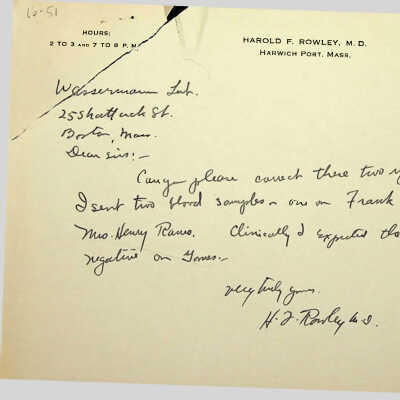 12-51
HOURS:
2 TO 3 AND 7 TO 8 P. M.
HAROLD F. ROWLEY, M. D.
HARWICH PORT, MASS.
Wassermann Lab.
25 Shattuck St.
Boston, Mass.
Dear Sirs:-
Can you please correct these two
I sent two blood samples - one on Frank
Mrs. Henry Clinically I expected
negative on Jones.-
Very truly yours.
H. F. Rowley M.D.